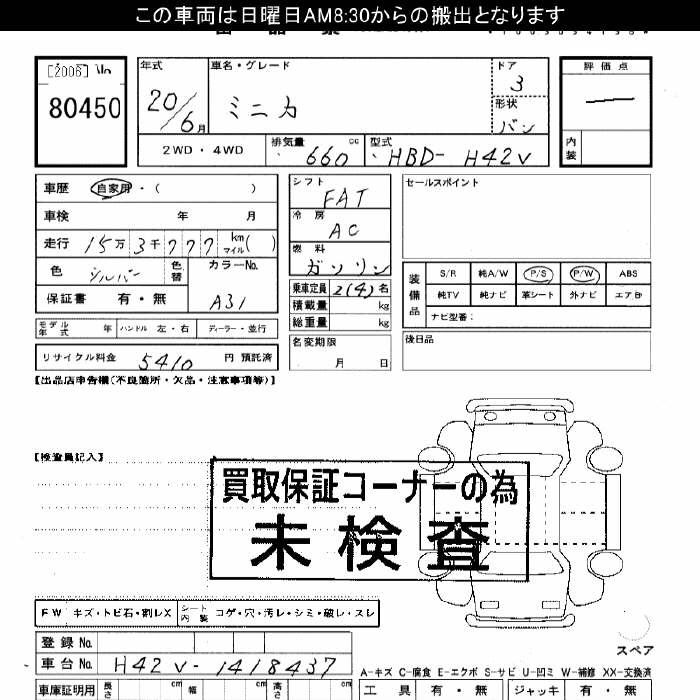 この車両は日曜日AM8:30からの搬出となります
[2006] No
80450
年式 20/6月
車名・グレード ミニカ
ドア 3
形状 バン
評価点
内装
2WD・4WD
排気量 660 cc
型式 HBD- H42V
車歴 自家用・( )
車検 年 月
走行 15万3千777 km マイル( )
色 シルバー 色替 カラーNo. A31
保証書 有・無
モデル年式 年 ハンドル 左・右 ディーラー・並行
リサイクル料金 5410 円 預託済
シフト FAT
冷房 AC
燃料 ガソリン
乗車定員 2(4)名
積載量 kg
総重量 kg
名変期限 月 日
セールスポイント
装備品
S/R 純A/W P/S P/W ABS
純TV 純ナビ 革シート 外ナビ エアB
ナビ型番:
後日品
【出品店申告欄(不良箇所・欠品・注意事項等)】
【検査員記入】
買取保証コーナーの為
未検査
FW キズ・トビ石・割レX シート内装 コゲ・穴・汚レ・シミ・破レ・スレ
スペア
登録No.
車台No. H42V-1418437
A-キズ C-腐食 E-エクボ S-サビ U-凹ミ W-補修 XX-交換済
車庫証明用 長さ cm 幅 cm 高さ cm
工具 有・無 ジャッキ 有・無